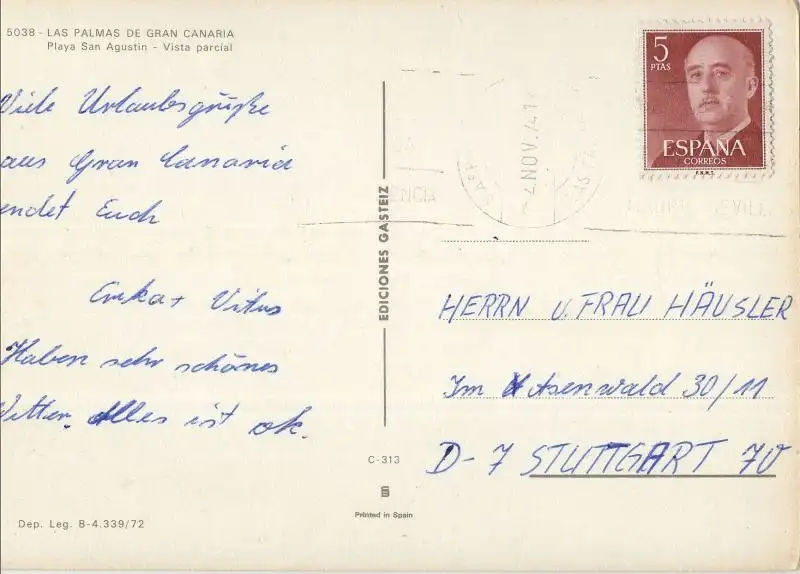 5038 - LAS PALMAS DE GRAN CANARIA
Playa San Agustin - Vista parcial
Viele Urlaubsgrüße
aus Gran Canaria
endet Euch
Erika + Vitus
Haben sehr schönes
Wetter. Alles ist ok.
EDICIONES GASTEIZ
C-313
Printed in Spain
Dep. Leg. B-4.339/72
5
PTAS
ESPAÑA
CORREOS
F.N.M.T.
4 NOV. 74
HERRN u. FRAU HÄUSLER
Im Asenwald 30/11
D-7 STUTTGART 70